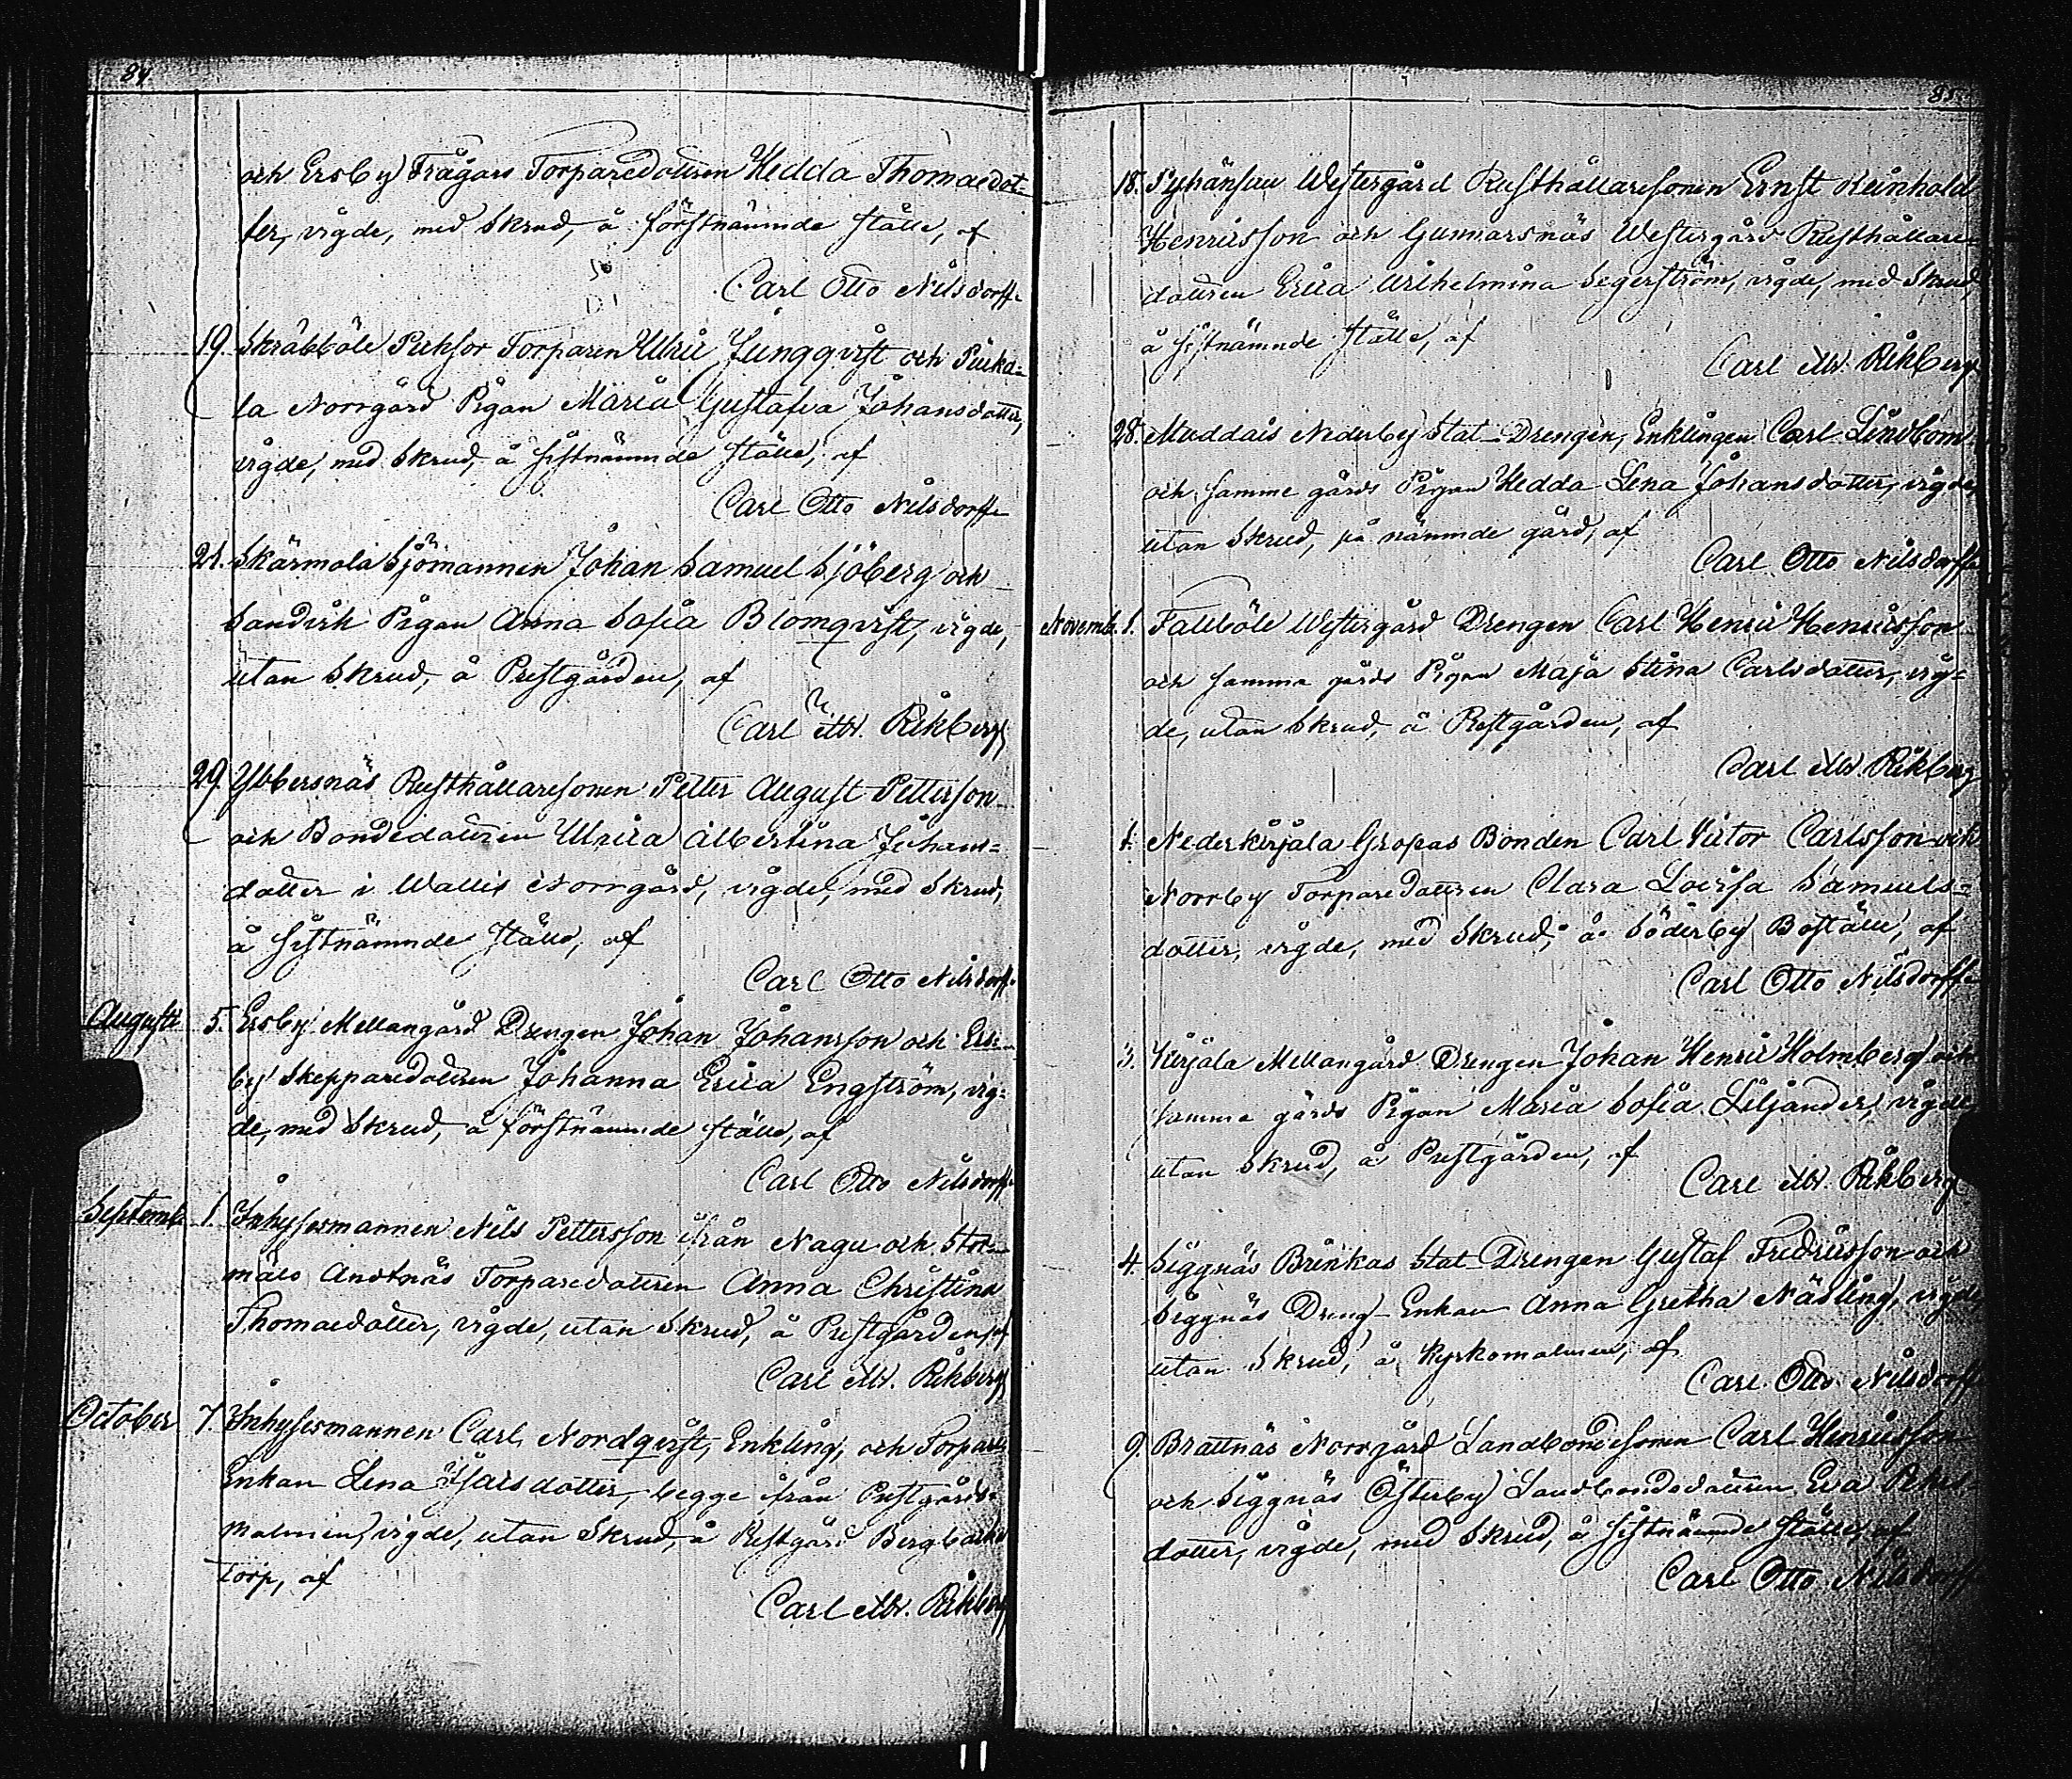 84.
och Ersby Trägars Torparedottren Hedda Thomædot-
ter, vigde, med Skrud, å förstnämnde ställe, af
Carl Otto Nilsdorff.
19. Skräbböle Torparen Ulric Ljungqvist och
la Norrgård Pigan Maria Gustafva Johansdotter,
vigde, med Skrud, å sistnämnde ställe, af
Carl Otto Nilsdorff
21. Skärmola Sjömannen Johan Samuel Sjöberg och
Sandvik Pigan Anna Sofia Blomqvist, vigde,
utan Skrud, å Prestgården, af
Carl Rikberg
29. Ybbersnäs Rusthållaresonen Petter August Petterson
och Bondedottren Ulrica Albertina Johans-
dotter i Wallis Norrgård, vigde, med Skrud,
å sistnämnde ställe, af
Carl Otto Nilsdorff.
Augusti 5. Ersby Mellangård Drengen Johan Johansson och Ers-
by Skepparedottren Johanna Erica Engström, vig-
de, med Skrud, å förstnämnde ställe, af
Carl Otto Nilsdorff
Septemb. 1. Inhysesmannen Nils Pettersson ifrån Nagu och Stor-
mälö Andtnäs Torparedottren Anna Christina
Thomædotter, vigde, utan Skrud, å Prestgården, af
Carl Rikberg
October 7. Inhysesmannen Carl Nordqvist, Enkling, och Torpare-
Enkan Lena dotter, begge ifrån Prestgårds-
malmen, vigde, utan Skrud, å Prestgård Bergbacka
Torp, af
Carl Rikberg
85.
18. Pyhänsau Westergård Rusthållaresonen Ernst Reinhold
Henricsson och Gunnarsnäs Westergård Rusthållare-
dottren Erica Wilhelmina Segerström, vigde, med Skrud,
å sistnämnde ställe, af
Carl Rikberg
28. Muddais Nederby Stat-Drengen, Enklingen Carl Lindbom
och samme gårds Pigan Hedda Lena Johansdotter, vigde,
utan Skrud, på nämnde gård, af
Carl Otto Nilsdorff
Novemb. 1. Fallböle Westergård Drengen Carl Henric Henricsson
och samma gårds Pigan Maja Stina Carlsdotter, vig-
de, utan Skrud, å Prestgården, af
Carl Rikberg
1. Nederkirjala Gropas Bonden Carl Victor Carlsson och
Norrby Torparedottren Clara Lovisa Samuels-
dotter, vigde, med Skrud, å Söderby Boställe, af
Carl Otto Nilsdorff
3. Kirjala Mellangård Drengen Johan Henric Holmberg och
samma gårds Pigan Maria Sofia Liljander, vigde
utan Skrud, å Prestgården, af
Carl Rikberg
4. Siggnäs Brinkas Stat-Drengen Gustaf Fredricsson och
Siggnäs Dreng-Enkan Anna Gretha Näsling, vigde,
utan Skrud, å Kyrkomalmen, af
Carl Otto Nilsdorff
9. Brattnäs Norrgård Landbondesonen Carl Henricsson
och Siggnäs Österby Landbondedottren Eva
dotter, vigde, med Skrud, å sistnämnde ställe, af
Carl Otto Nilsdorff